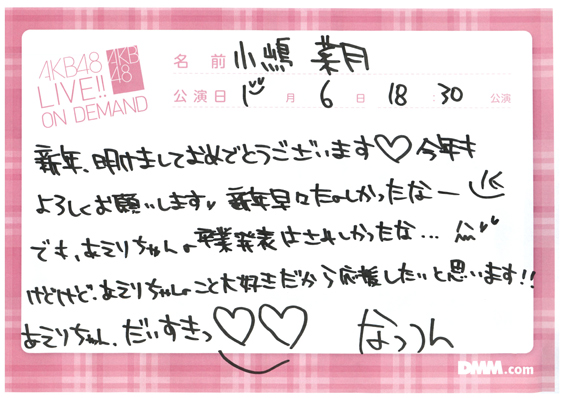 AKB48
LIVE!!
ON DEMAND
AKB
48
名前 小嶋 菜月
公演日 1月 6日 18:30 公演
新年、明けましておめでとうございます♡今年も
よろしくお願いします♥ 新年早々たのしかったなー
でも、あそりちゃんの卒業発表はさみしかったな…
けどけど、あそりちゃんのこと大好きだから応援したいと思います!!
あそりちゃん、だいすきっ♡♡ なっつん
DMM.com